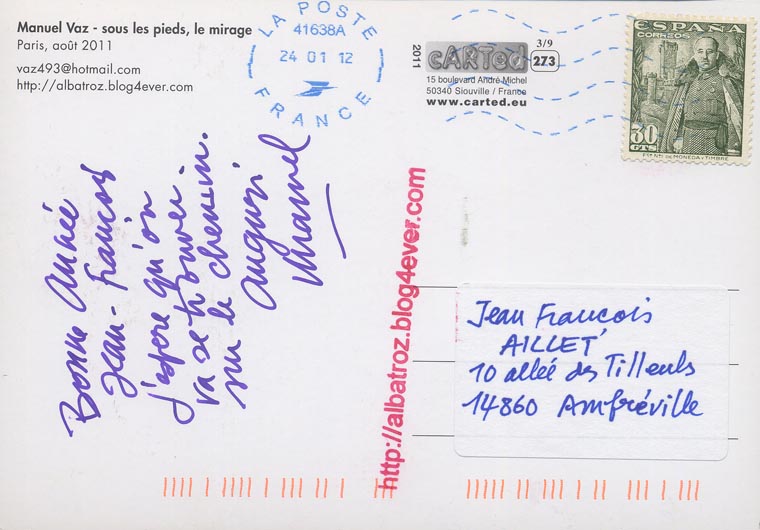 Manuel Vaz - sous les pieds, le mirage
Paris, août 2011
vaz493@hotmail.com
http://albatroz.blog4ever.com
LA POSTE
41638A
24 01 12
FRANCE
2011
cARTed
3/9
273
15 boulevard André Michel
50340 Siouville / France
www.carted.eu
ESPAÑA
CORREOS
30
CTS
Bonne Année
Jean-François
J'espère qu'on
va se trouver
sur le chemin.
auguri
Manuel
http://albatroz.blog4ever.com
Jean François
AILLET
10 allée des Tilleuls
14860 Amfréville